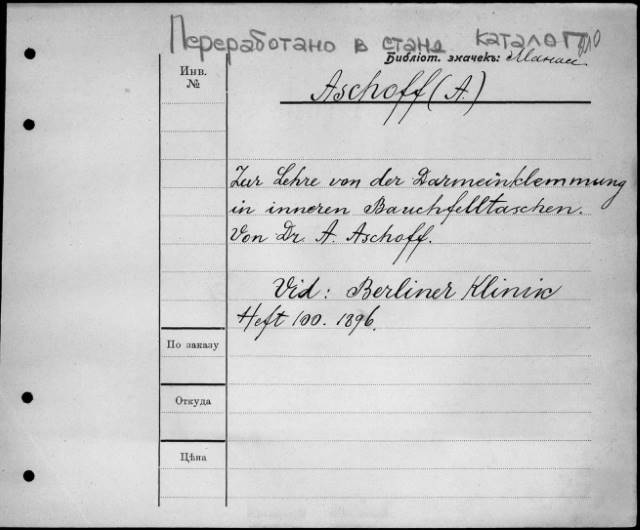 Переработано в станд каталог
Библіот. значекъ:
Инв.
№
Aschoff (A.)
Zur Lehre von der Darmeinklemmung
in inneren Bauchfelltaschen.
Von Dr. A. Aschoff.
Vid: Berliner Klinik
Heft 100. 1896.
По заказу
Откуда
Цѣна